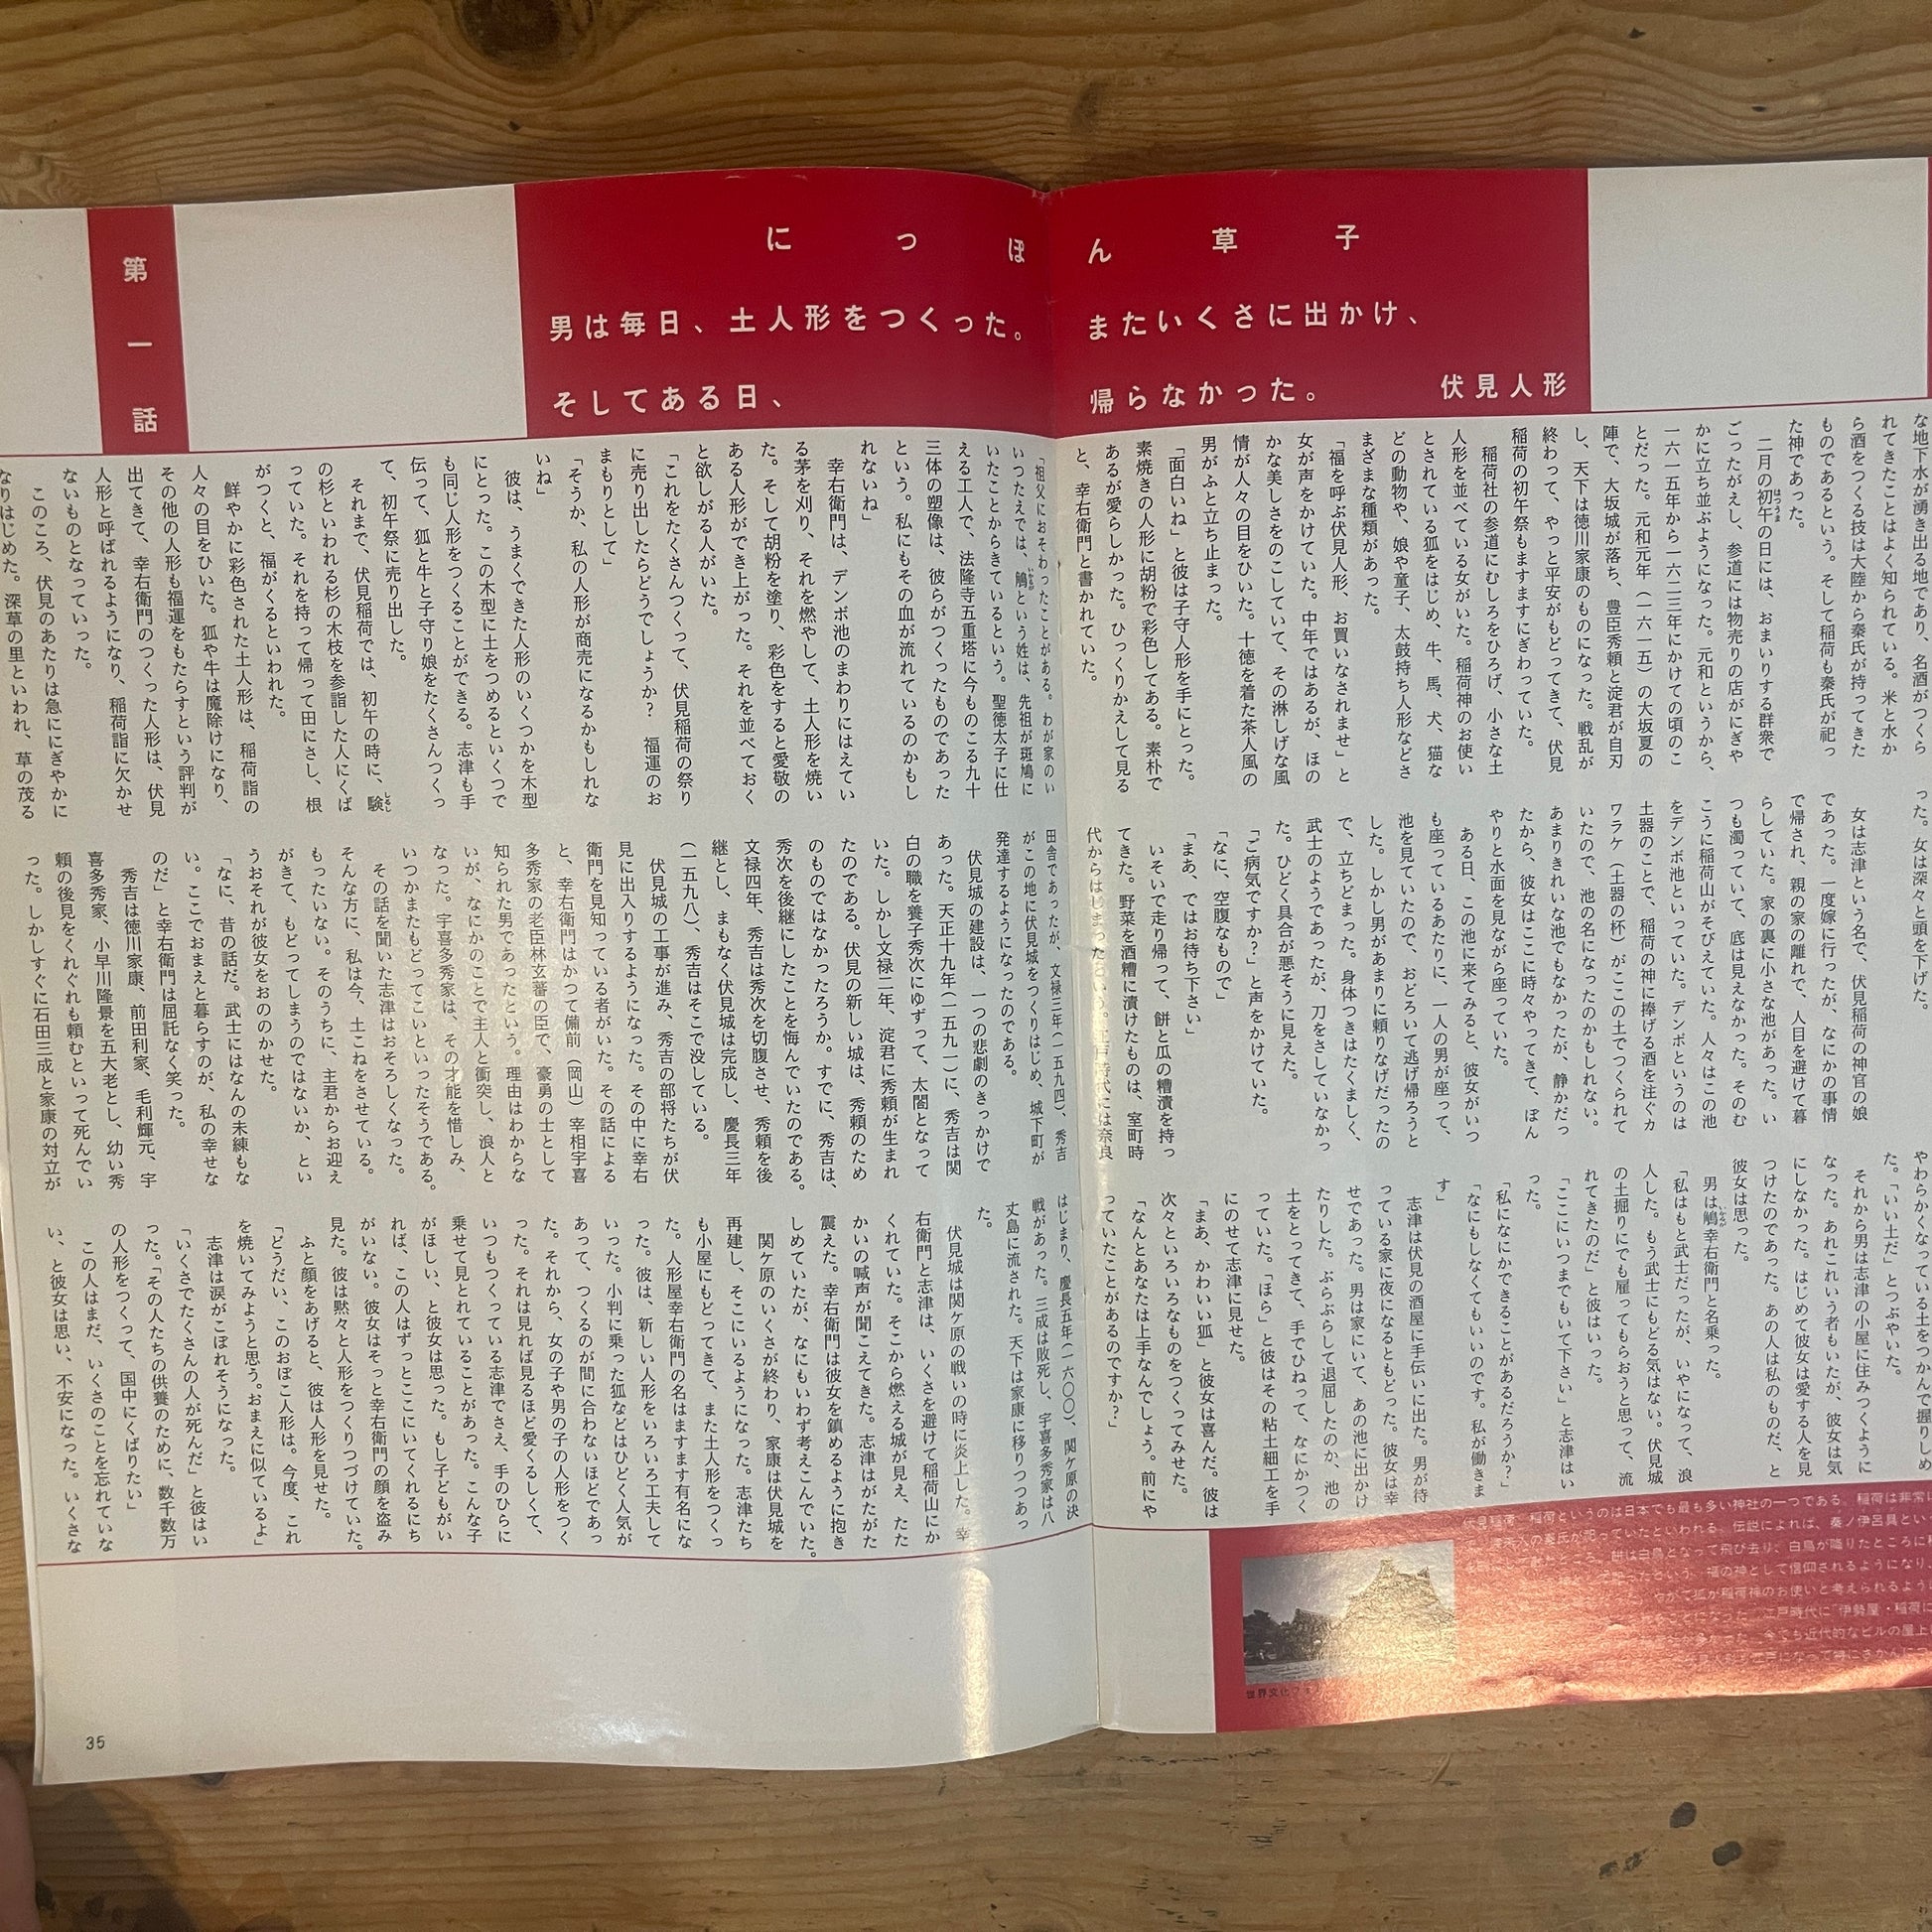 第一話
にっぽん草子
男は毎日、土人形をつくった。
そしてある日、
またいくさに出かけ、
帰らなかった。
伏見人形
な地下水が湧き出る地であり、名酒がつくら
れてきたことはよく知られている。米と水か
ら酒をつくる技は大陸から秦氏が持ってきた
ものであるという。そして稲荷も秦氏が祀っ
た神であった。
二月の初午の日には、おまいりする群衆で
ごったがえし、参道には物売りの店がにぎや
かに立ち並ぶようになった。元和というから、
一六一五年から一六二三年にかけての頃のこ
とだった。元和元年(一六一五)の大坂夏の
陣で、大坂城が落ち、豊臣秀頼と淀君が自刃
し、天下は徳川家康のものになった。戦乱が
終わって、やっと平安がもどってきて、伏見
稲荷の初午祭もますますにぎわっていた。
稲荷社の参道にむしろをひろげ、小さな土
人形を並べている女がいた。稲荷神のお使い
とされている狐をはじめ、牛、馬、犬、猫な
どの動物や、娘や童子、太鼓持ち人形などさ
まざまな種類があった。
「福を呼ぶ伏見人形、お買いなされませ」と
女が声をかけていた。中年ではあるが、ほの
かな美しさをのこしていて、その淋しげな風
情が人々の目をひいた。十徳を着た茶人風の
男がふと立ち止まった。
「面白いね」と彼は子守人形を手にとった。
素焼きの人形に胡粉で彩色してある。素朴で
あるが愛らしかった。ひっくりかえして見る
と、幸右衛門と書かれていた。
った。女は深々と頭を下げた。
女は志津という名で、伏見稲荷の神官の娘
であった。一度嫁に行ったが、なにかの事情
で帰され、親の家の離れで、人目を避けて暮
らしていた。家の裏に小さな池があった。い
つも濁っていて、底は見えなかった。そのむ
こうに稲荷山がそびえていた。人々はこの池
をデンボ池といっていた。デンボというのは
土器のことで、稲荷の神に捧げる酒を注ぐカ
ワラケ(土器の杯)がここの土でつくられて
いたので、池の名になったのかもしれない。
あまりきれいな池でもなかったが、静かだっ
たから、彼女はここに時々やってきて、ぼん
やりと水面を見ながら座っていた。
ある日、この池に来てみると、彼女がいつ
も座っているあたりに、一人の男が座って、
池を見ていたので、おどろいて逃げ帰ろうと
した。しかし男があまりに頼りなげだったの
で、立ちどまった。身体つきはたくましく、
武士のようであったが、刀をさしていなかっ
た。ひどく具合が悪そうに見えた。
「ご病気ですか?」と声をかけていた。
「なに、空腹なもので」
「まあ、ではお待ち下さい」
いそいで走り帰って、餅と瓜の糟漬を持っ
てきた。野菜を酒糟に漬けたものは、室町時
代からはじまったという。江戸時代には奈良
やわらかくなっている土をつかんで握りしめ
た。「いい土だ」とつぶやいた。
それから男は志津の小屋に住みつくように
なった。あれこれいう者もいたが、彼女は気
にしなかった。はじめて彼女は愛する人を見
つけたのであった。あの人は私のものだ、と
彼女は思った。
男は鵤幸右衛門と名乗った。
「私はもと武士だったが、いやになって、浪
人した。もう武士にもどる気はない。伏見城
の土掘りにでも雇ってもらおうと思って、流
れてきたのだ」と彼はいった。
「ここにいつまでもいて下さい」と志津はい
った。
「私になにかできることがあるだろうか?」
「なにもしなくてもいいのです。私が働きま
す」
志津は伏見の酒屋に手伝いに出た。男が待
っている家に夜になるともどった。彼女は幸
せであった。男は家にいて、あの池に出かけ
たりした。ぶらぶらして退屈したのか、池の
土をとってきて、手でひねって、なにかつく
っていた。「ほら」と彼はその粘土細工を手
にのせて志津に見せた。
「まあ、かわいい狐」と彼女は喜んだ。彼は
次々といろいろなものをつくってみせた。
「なんとあなたは上手なんでしょう。前にや
っていたことがあるのですか?」
「祖父におそわったことがある。わが家のい
いつたえでは、鵤という姓は、先祖が斑鳩に
いたことからきているという。聖徳太子に仕
える工人で、法隆寺五重塔に今ものこる九十
三体の塑像は、彼らがつくったものであった
という。私にもその血が流れているのかもし
れないね」
幸右衛門は、デンボ池のまわりにはえてい
る茅を刈り、それを燃やして、土人形を焼い
た。そして胡粉を塗り、彩色をすると愛敬の
ある人形ができ上がった。それを並べておく
と欲しがる人がいた。
「これをたくさんつくって、伏見稲荷の祭り
に売り出したらどうでしょうか? 福運のお
まもりとして」
「そうか、私の人形が商売になるかもしれな
いね」
彼は、うまくできた人形のいくつかを木型
にとった。この木型に土をつめるといくつで
も同じ人形をつくることができる。志津も手
伝って、狐と牛と子守り娘をたくさんつくっ
て、初午祭に売り出した。
それまで、伏見稲荷では、初午の時に、験
の杉といわれる杉の木枝を参詣した人にくば
っていた。それを持って帰って田にさし、根
がつくと、福がくるといわれた。
鮮やかに彩色された土人形は、稲荷詣の
人々の目をひいた。狐や牛は魔除けになり、
その他の人形も福運をもたらすという評判が
出てきて、幸右衛門のつくった人形は、伏見
人形と呼ばれるようになり、稲荷詣に欠かせ
ないものとなっていった。
このころ、伏見のあたりは急ににぎやかに
なりはじめた。深草の里といわれ、草の茂る
田舎であったが、文禄三年(一五九四)、秀吉
がこの地に伏見城をつくりはじめ、城下町が
発達するようになったのである。
伏見城の建設は、一つの悲劇のきっかけで
あった。天正十九年(一五九一)に、秀吉は関
白の職を養子秀次にゆずって、太閤となって
いた。しかし文禄二年、淀君に秀頼が生まれ
たのである。伏見の新しい城は、秀頼のため
のものではなかったろうか。すでに、秀吉は、
秀次を後継にしたことを悔んでいたのである。
文禄四年、秀吉は秀次を切腹させ、秀頼を後
継とし、まもなく伏見城は完成し、慶長三年
(一五九八)、秀吉はそこで没している。
伏見城の工事が進み、秀吉の部将たちが伏
見に出入りするようになった。その中に幸右
衛門を見知っている者がいた。その話による
と、幸右衛門はかつて備前(岡山)宰相宇喜
多秀家の老臣林玄蕃の臣で、豪勇の士として
知られた男であったという。理由はわからな
いが、なにかのことで主人と衝突し、浪人と
なった。宇喜多秀家は、その才能を惜しみ、
いつかまたもどってこいといったそうである。
その話を聞いた志津はおそろしくなった。
そんな方に、私は今、土こねをさせている。
もったいない。そのうちに、主君からお迎え
がきて、もどってしまうのではないか、とい
うおそれが彼女をおののかせた。
「なに、昔の話だ。武士にはなんの未練もな
い。ここでおまえと暮らすのが、私の幸せな
のだ」と幸右衛門は屈託なく笑った。
秀吉は徳川家康、前田利家、毛利輝元、宇
喜多秀家、小早川隆景を五大老とし、幼い秀
頼の後見をくれぐれも頼むといって死んでい
った。しかしすぐに石田三成と家康の対立が
はじまり、慶長五年(一六〇〇)、関ケ原の決
戦があった。三成は敗死し、宇喜多秀家は八
丈島に流された。天下は家康に移りつつあっ
た。
伏見城は関ケ原の戦いの時に炎上した。幸
右衛門と志津は、いくさを避けて稲荷山にか
くれていた。そこから燃える城が見え、たた
かいの喊声が聞こえてきた。志津はがたがた
震えた。幸右衛門は彼女を鎮めるように抱き
しめていたが、なにもいわず考えこんでいた。
関ケ原のいくさが終わり、家康は伏見城を
再建し、そこにいるようになった。志津たち
も小屋にもどってきて、また土人形をつくっ
た。人形屋幸右衛門の名はますます有名にな
った。彼は、新しい人形をいろいろ工夫して
いった。小判に乗った狐などはひどく人気が
あって、つくるのが間に合わないほどであっ
た。それから、女の子や男の子の人形をつく
った。それは見れば見るほど愛くるしくて、
いつもつくっている志津でさえ、手のひらに
乗せて見とれていることがあった。こんな子
がほしい、と彼女は思った。もし子どもがい
れば、この人はずっとここにいてくれるにち
がいない。彼女はそっと幸右衛門の顔を盗み
見た。彼は黙々と人形をつくりつづけていた。
ふと顔をあげると、彼は人形を見せた。
「どうだい、このおぼこ人形は。今度、これ
を焼いてみようと思う。おまえに似ているよ」
志津は涙がこぼれそうになった。
「いくさでたくさんの人が死んだ」と彼はい
った。「その人たちの供養のために、数千数万
の人形をつくって、国中にくばりたい」
この人はまだ、いくさのことを忘れていな
い、と彼女は思い、不安になった。いくさな
35